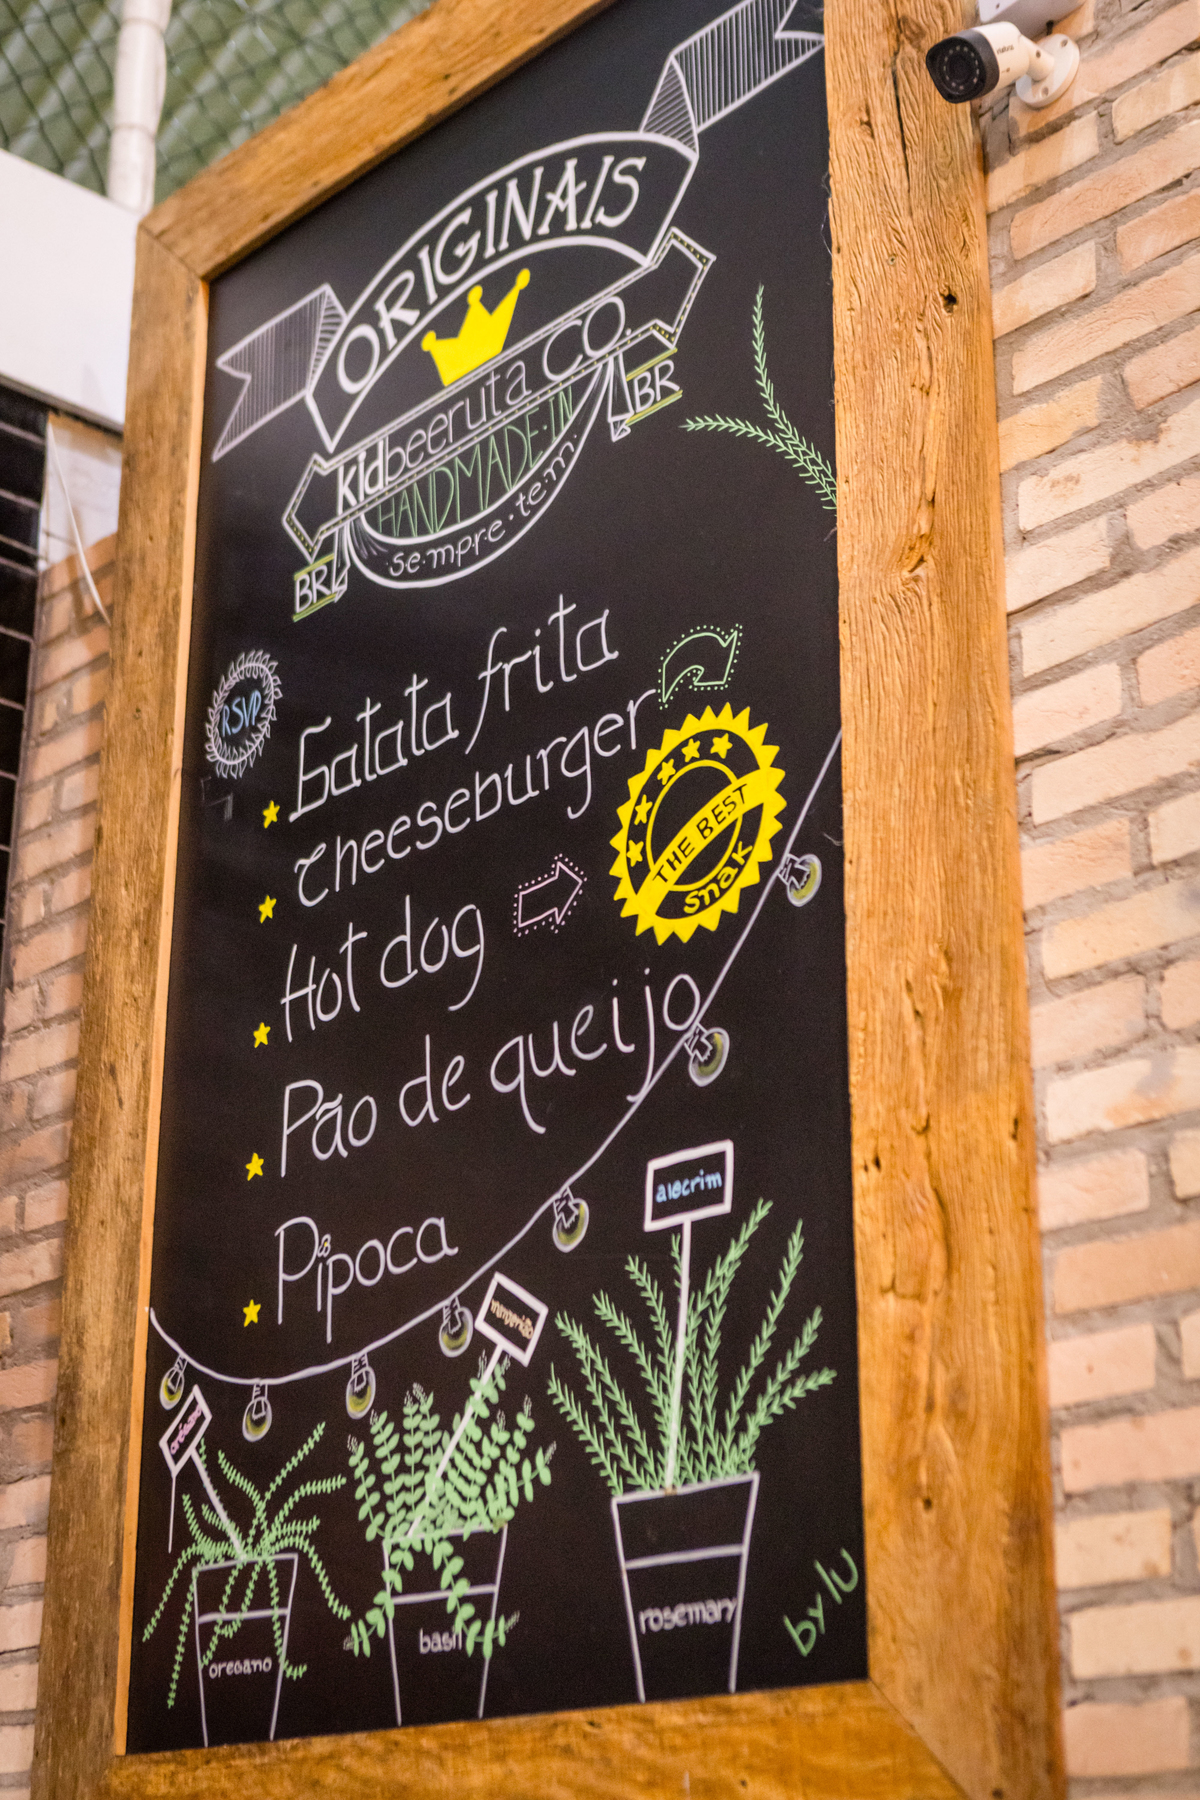 ORIGINAIS
kidbeeruta CO.
HANDMADE·IN
·se·mpre·tem·
BR
BR
RSVP
batata frita
cheeseburger
THE BEST
snak
Hot dog
Pão de queijo
Pipoca
alecrim
manjericão
orégano
oregano
basil
rosemary
by lu